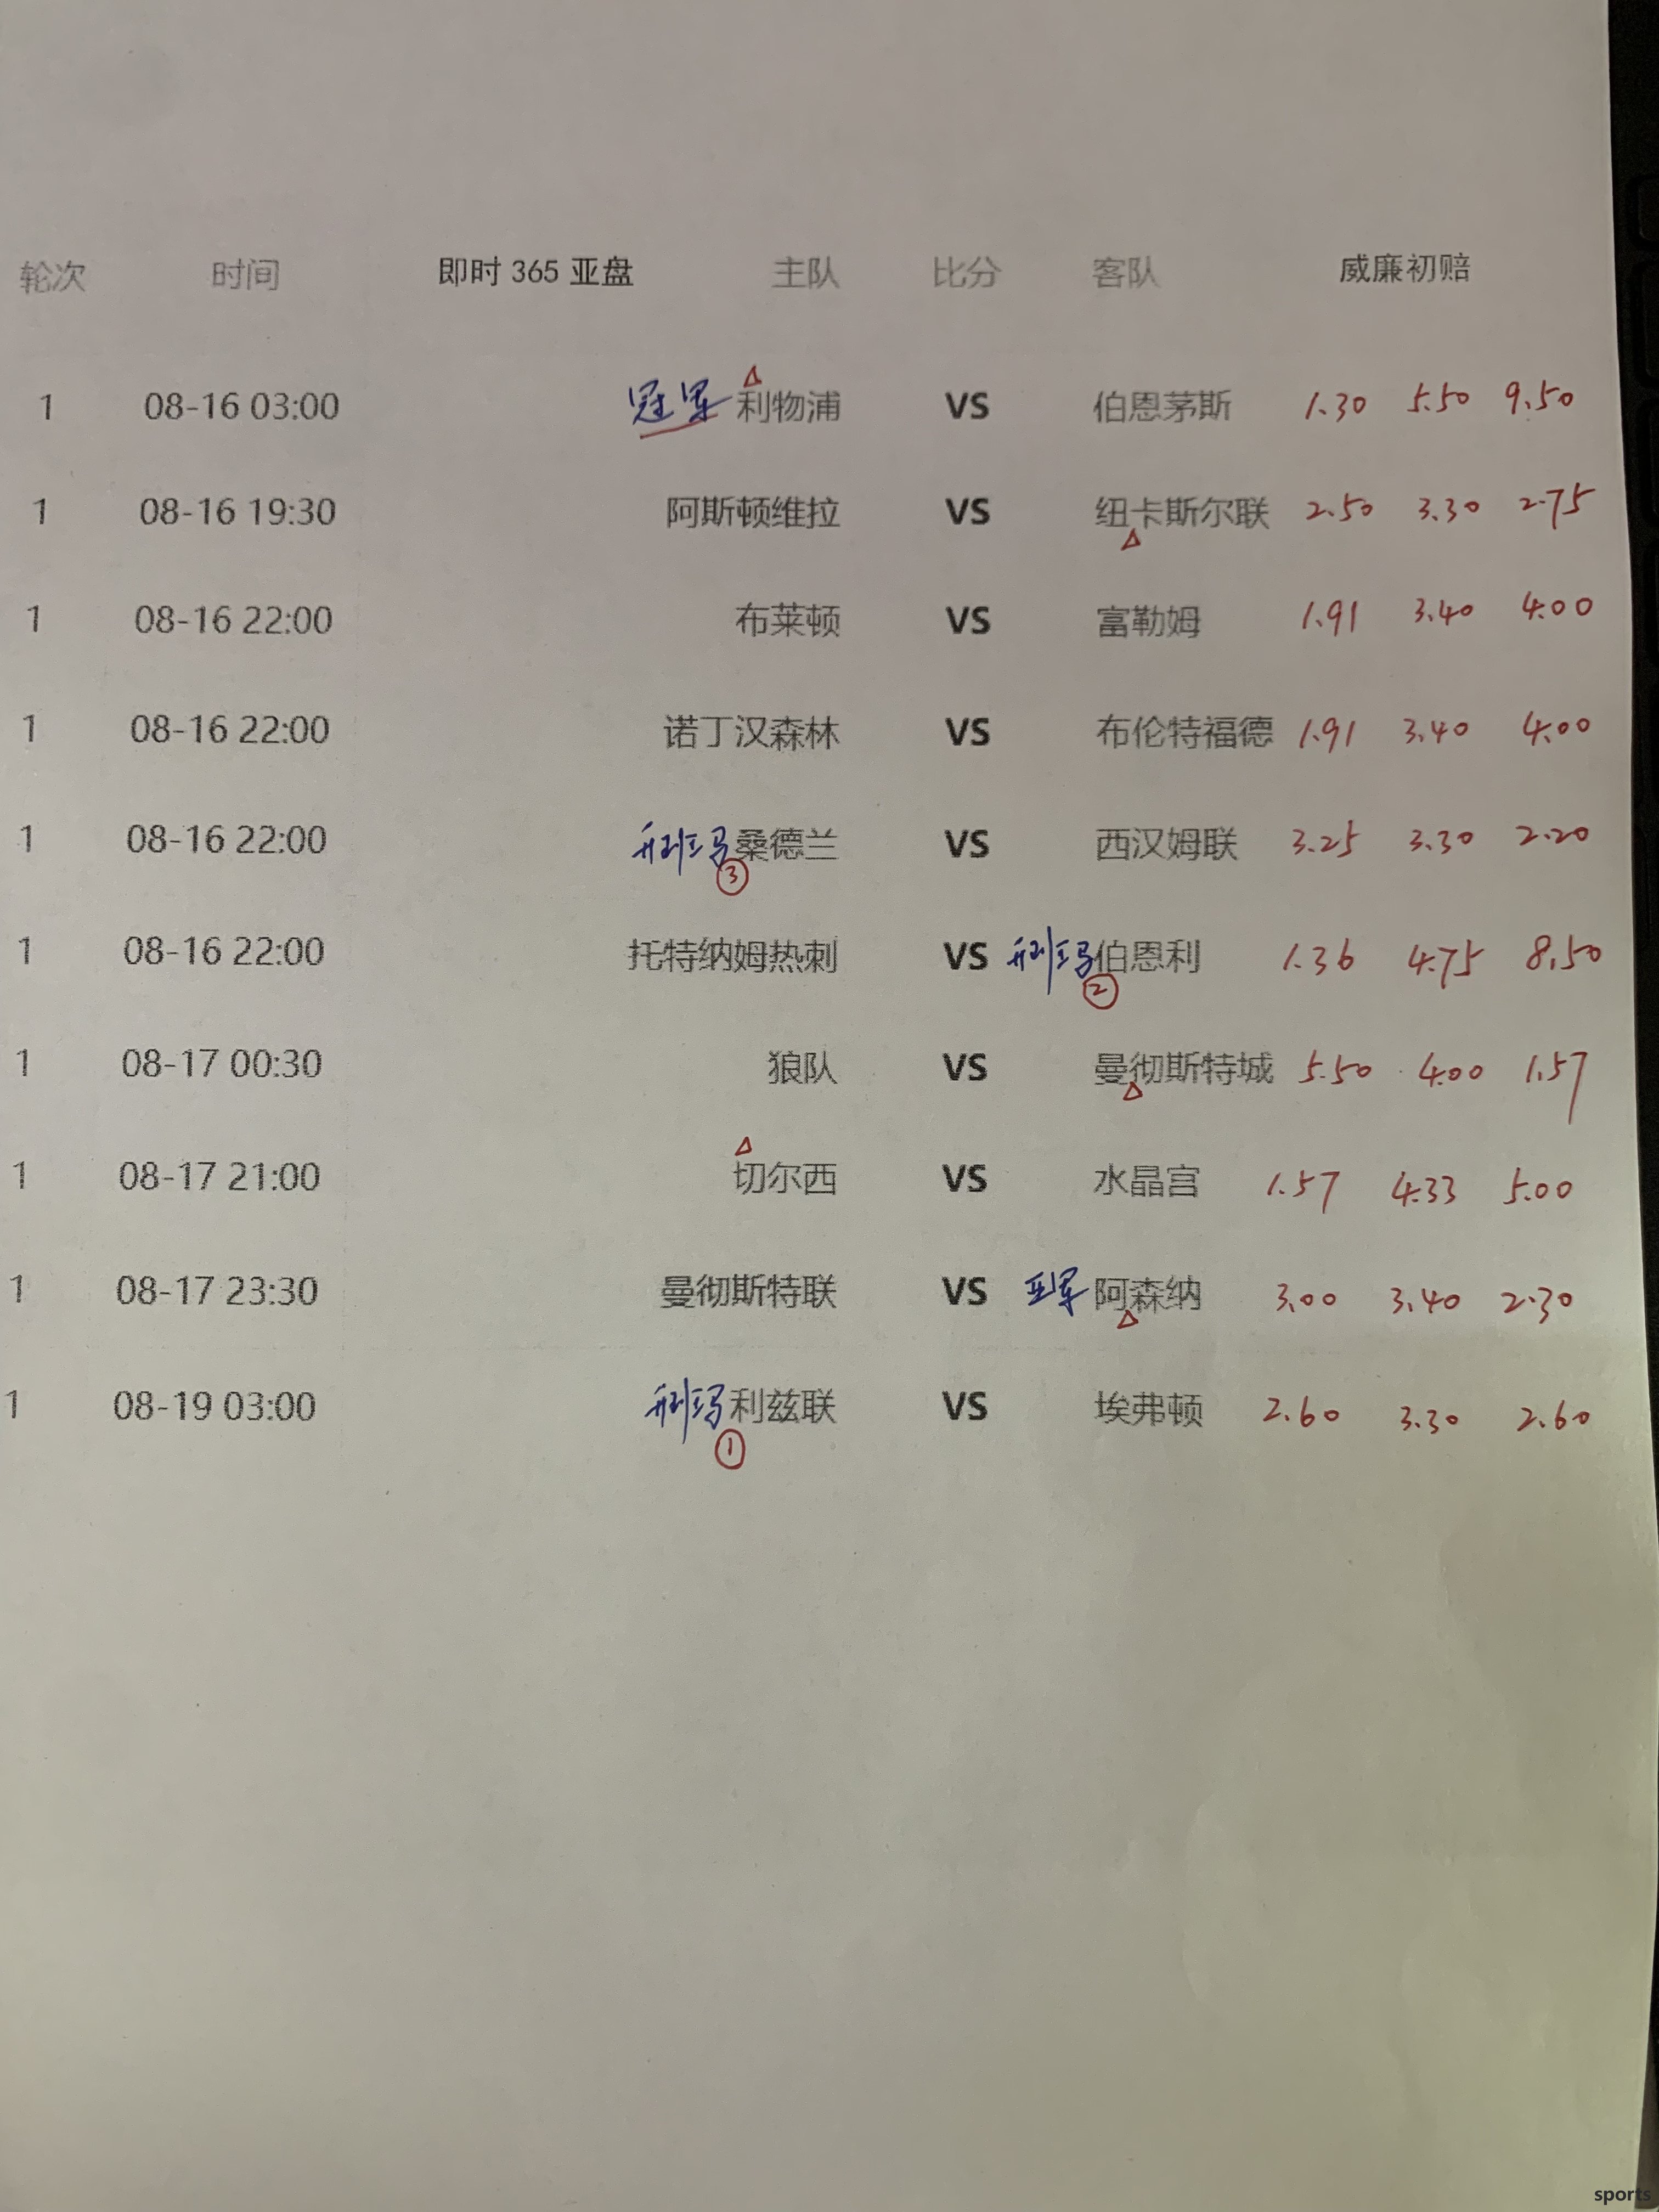 轮次 时间 即时 365 亚盘 主队 比分 客队 威廉初赔
1 08-16 03:00 冠军 利物浦 VS 伯恩茅斯 1.30 5.50 9.50
1 08-16 19:30 阿斯顿维拉 VS 纽卡斯尔联 2.50 3.30 2.75
1 08-16 22:00 布莱顿 VS 富勒姆 1.91 3.40 4.00
1 08-16 22:00 诺丁汉森林 VS 布伦特福德 1.91 3.40 4.00
1 08-16 22:00 升班马 桑德兰 VS 西汉姆联 3.25 3.30 2.20
③
1 08-16 22:00 托特纳姆热刺 VS 升班马 伯恩利 1.36 4.75 8.50
②
1 08-17 00:30 狼队 VS 曼彻斯特城 5.50 4.00 1.57
1 08-17 21:00 切尔西 VS 水晶宫 1.57 4.33 5.00
1 08-17 23:30 曼彻斯特联 VS 亚军 阿森纳 3.00 3.40 2.30
1 08-19 03:00 升班马 利兹联 VS 埃弗顿 2.60 3.30 2.60
①
sports